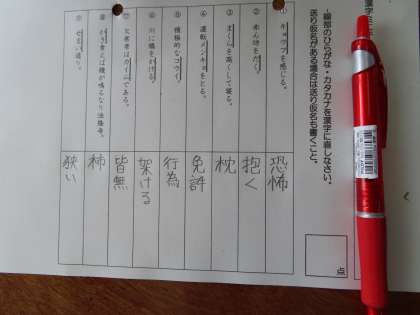 漢字
一線部のひらがな・カタカナを漢字に直しなさい。
送り仮名がある場合は送り仮名も書くこと。
点
① キョウフを感じる。
恐怖
② 赤ん坊をだく。
抱く
③ まくらを高くして寝る。
枕
④ 運転メンキョをとる。
免許
⑤ 積極的なコウイ。
行為
⑥ 川に橋をかける。
架ける
⑦ 欠席者はカイムである。
皆無
⑧ かき食えば鐘が鳴るなり法隆寺。
柿
⑨ せまい通り。
狭い